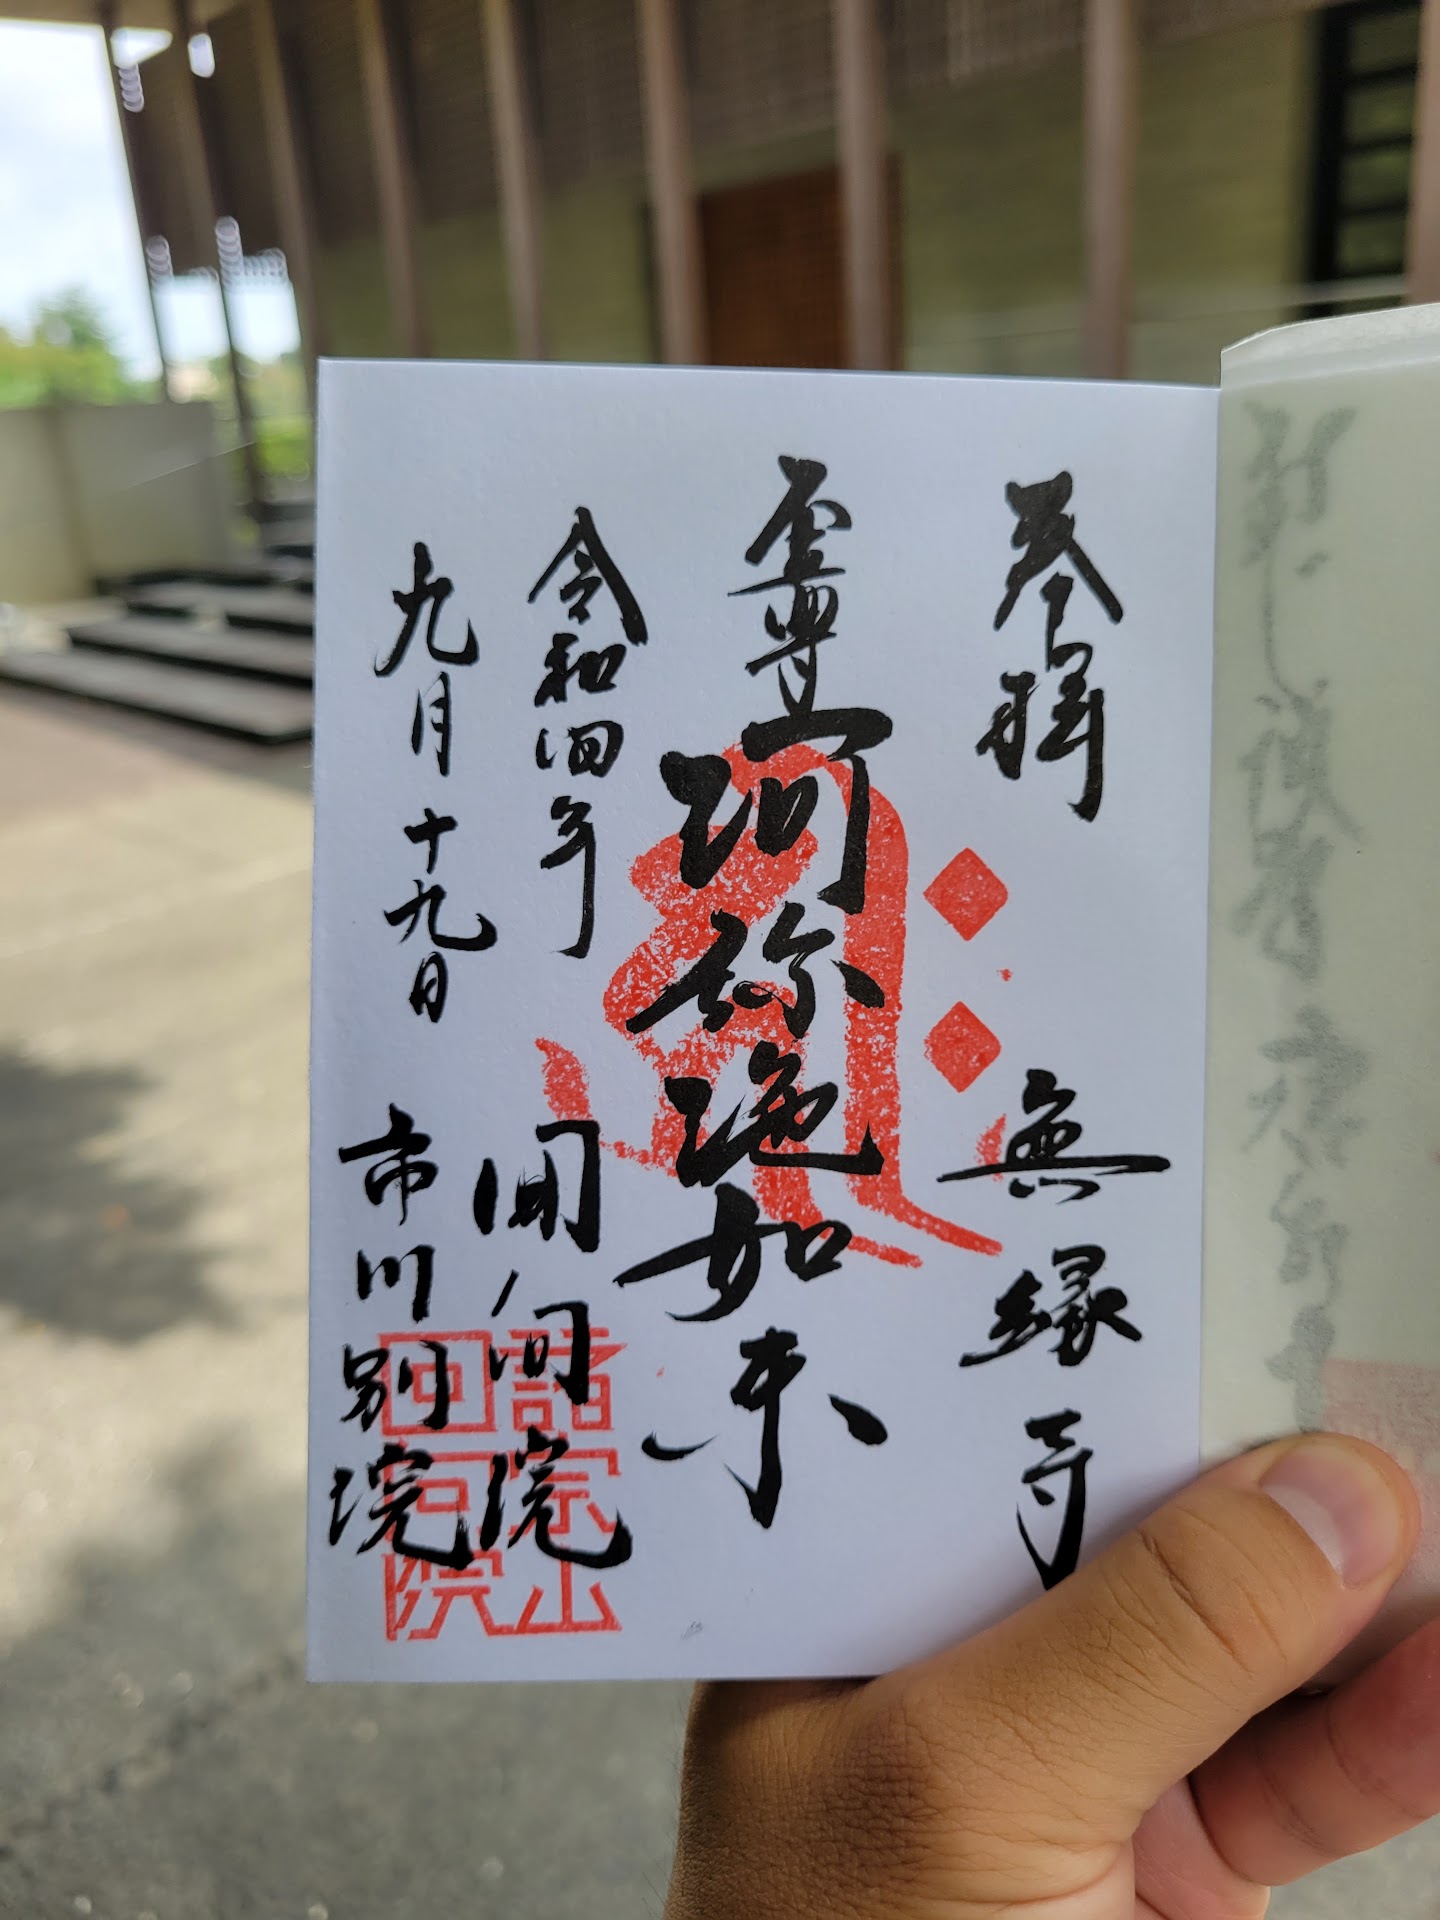 奉拝 無縁寺
阿弥陀如来
令和四年 回向院
九月十九日 市川別院
諸宗山
回向院